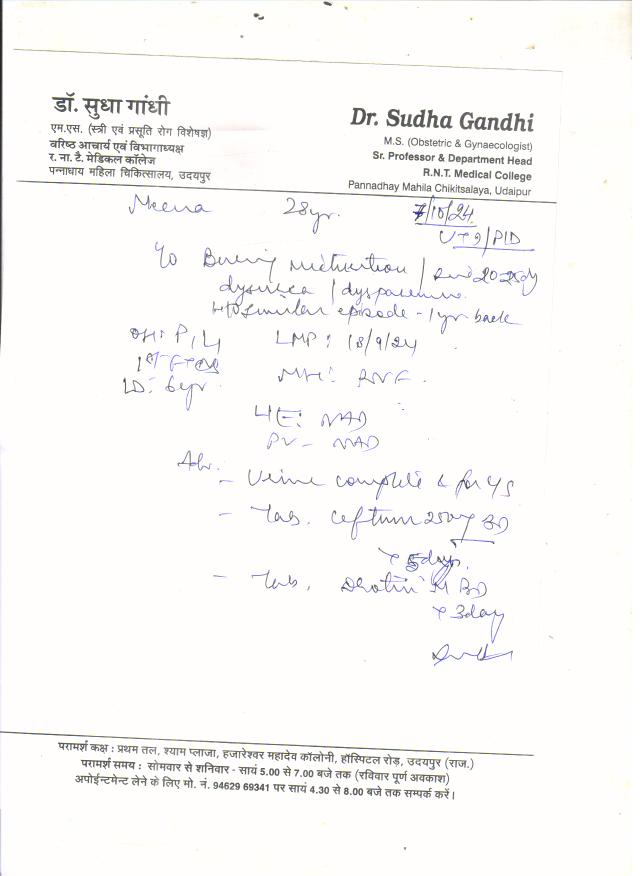 डॉ. सुधा गांधी
एम.एस. (स्त्री एवं प्रसूति रोग विशेषज्ञ)
वरिष्ठ आचार्य एवं विभागाध्यक्ष
र. ना. टै. मेडिकल कॉलेज
पन्नाधाय महिला चिकित्सालय, उदयपुर
Dr. Sudha Gandhi
M.S. (Obstetric & Gynaecologist)
Sr. Professor & Department Head
R.N.T. Medical College
Pannadhay Mahila Chikitsalaya, Udaipur
Meena 28yr. 7/10/24
/PID
Burning micturition / 20-25dy
dysurea / dyspareunia
H/O similar episode - 1yr back
OH: P1L1 LMP: 18/9/24
1st FTND
LD: 6yr. MH: RNF.
L/E: NAD
PV - NAD
Adv.
- Urine complete & for C/S
- Tab. Ceftum 250mg BD
x 5days.
- Tab. Drotin M BD
x 3day
परामर्श कक्ष : प्रथम तल, श्याम प्लाजा, हजारेश्वर महादेव कॉलोनी, हॉस्पिटल रोड़, उदयपुर (राज.)
परामर्श समय : सोमवार से शनिवार - सायं 5.00 से 7.00 बजे तक (रविवार पूर्ण अवकाश)
अपोईन्टमेन्ट लेने के लिए मो. नं. 94629 69341 पर सायं 4.30 से 8.00 बजे तक सम्पर्क करें।